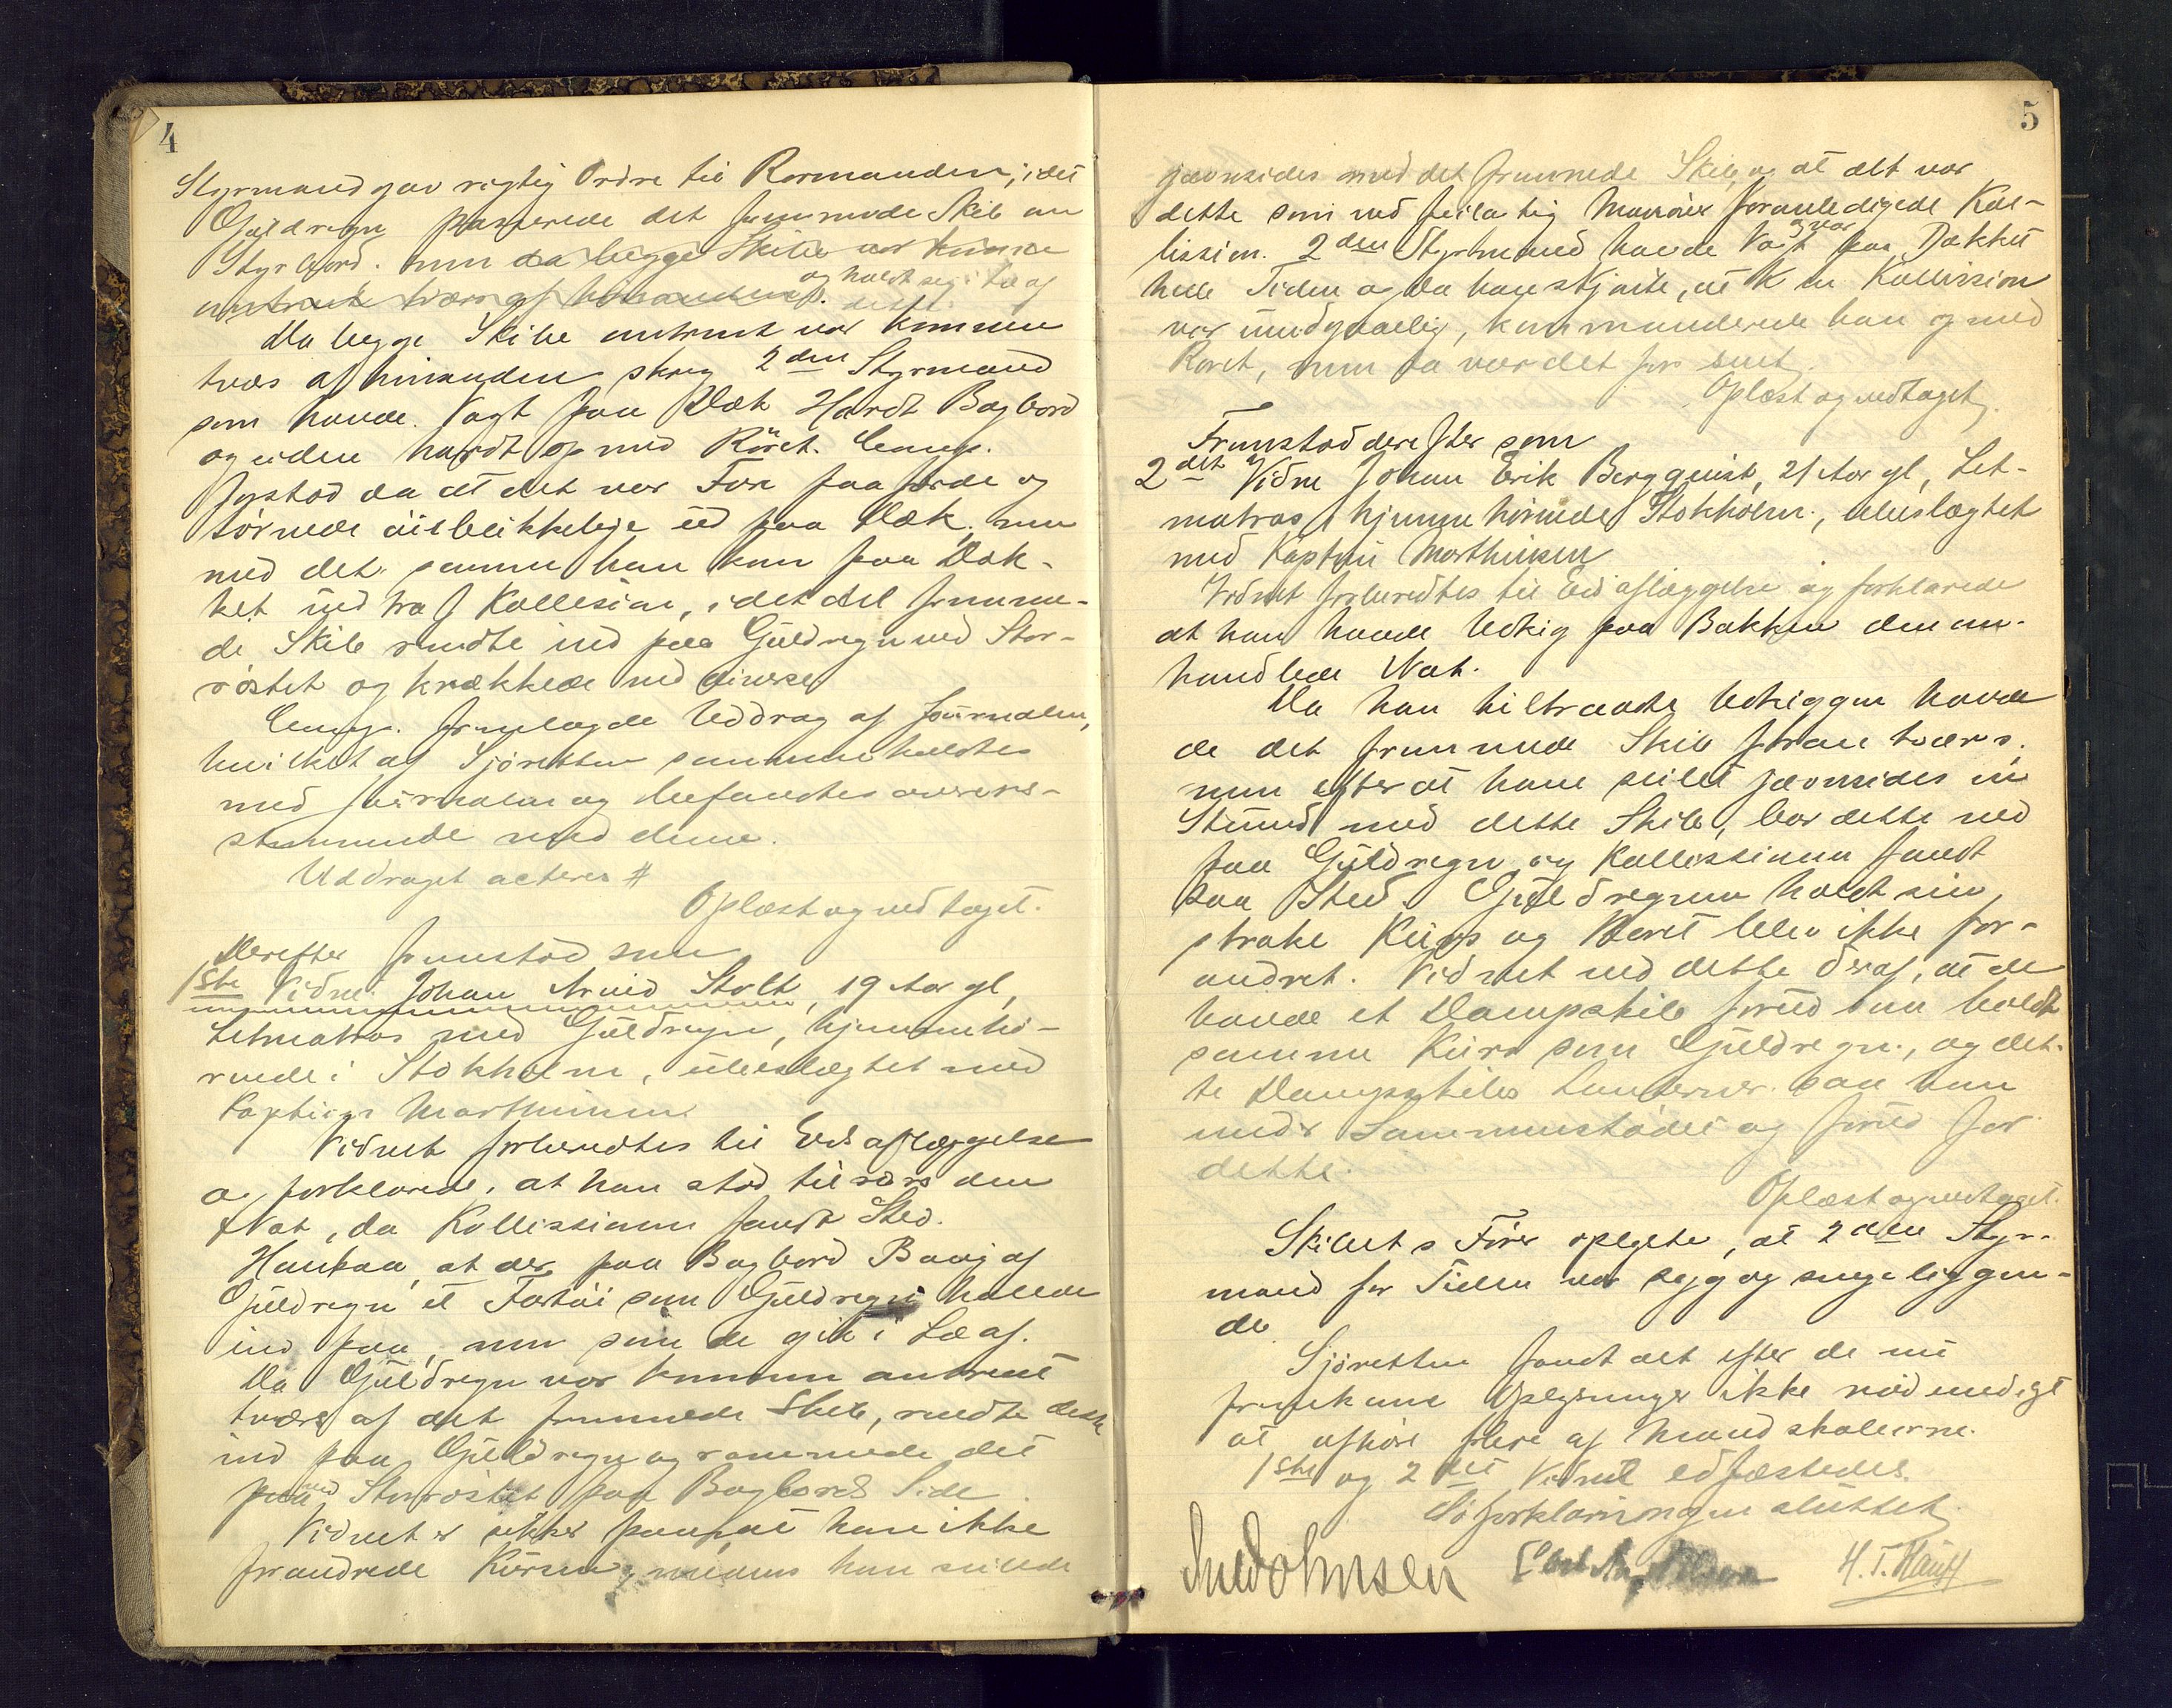 4
Styrmand gav rigtig Ordre til Rormanden, idet
Guldregn passerede det fremmede Skib om
Styrbord. men da begge Skibe var komne
omtrent tværs af hinanden. og holdt seg i Læ af
dette.
Da begge Skibe omtrent var kommen
tvers af hinanden skreg 2den Styrmand
som havde Vagt paa Dæk Hardt Bagbord
og siden hardt op med Roret. Comp.
forstod da at det var Fare paa færde og
tørnede øieblikkelig ud paa Dæk, men
med det samme han kom paa Dæk-
ket indtraf Kollision, idet det fremme-
de Skib rendte ind paa Guldregn ved Stor-
røstet og knækkede ned diverse
Comp. fremlagde Uddrag af Journalen,
hvilket af Sjøretten sammenholdtes
med Journalen og befandtes overens-
stemmende med denne.
Uddraget acteres #
Oplæst og vedtaget.
Derefter fremstod som
1ste Vidne Johan Arvid Stolt, 19 Aar gl,
Letmatros med Guldregn, hjemmehø-
rende i Stokholm, ubeslægtet med
Kaptein Marthinsen.
Vidnet forberedtes til Edsaflæggelse
og forklarede, at han stod tilrors den
Nat, da Kollissionen fandt Sted.
Han saa, at der paa Bagbord Boug af
Guldregn et Fartøi som Guldregn halede
ind paa, men som de gik i Læ af.
Da Guldregn var kommen omtrent
tværs af det fremmede Skib, rendte dette
ind paa Guldregn og rammede det
paa ved Storrøstet paa Bagbords Side.
Vidnet er sikker paa, at han ikke
forandrede Kursen, medens han seilede
5
jævnsides med det fremmede Skib, og at det var
dette som ved feilagtig Manøver foranledigede Kol-
lission. 2den Styrmand havde Vagt og var paa Dækket
hele Tiden og da han skjønte, at K en Kollission
var uundgaaelig, kommanderede han op med
Roret, men da var det for sent.
Oplæst og vedtaget.
Fremstod derefter som
2det Vidne Johan Erik Bergquist, 21 Aar gl, Let-
matros, hjemmehørende Stokholm, ubeslægtet
med Kaptein Marthinsen
Vidnet forberedtes til Edsaflæggelse og forklarede
at han havde Udkig paa Bakken den om-
handlede Nat.
Da han tiltraadte Udkiggen havde
de det fremmede Skib foran tværs,
men efter at have seilet jævnsides en
Stund med dette Skib, bar dette ned
paa Guldregn og Kollissionen fandt
saa Sted. Guldregnen holdt sin
strake Kurs og Roret blev ikke for-
andret. Vidnet ved dette deraf, at de
havde et Dampskib forud som holdt
samme Kurs som Guldregn, og det-
te Dampskibs Lanterner saa han
under Sammenstødet og forud for
dette.
Oplæst og vedtaget.
Skibets Fører oplyste, at 2den Styr-
mand for Tiden var syg og sengeliggen-
de.
Sjøretten fandt det efter de nu
fremkomne Oplysninger ikke nødvendigt
at afhøre flere af Mandskaberne.
1ste og 2det Vidne edfæstedes.
Søforklaringen sluttet.
H. T. Hauff